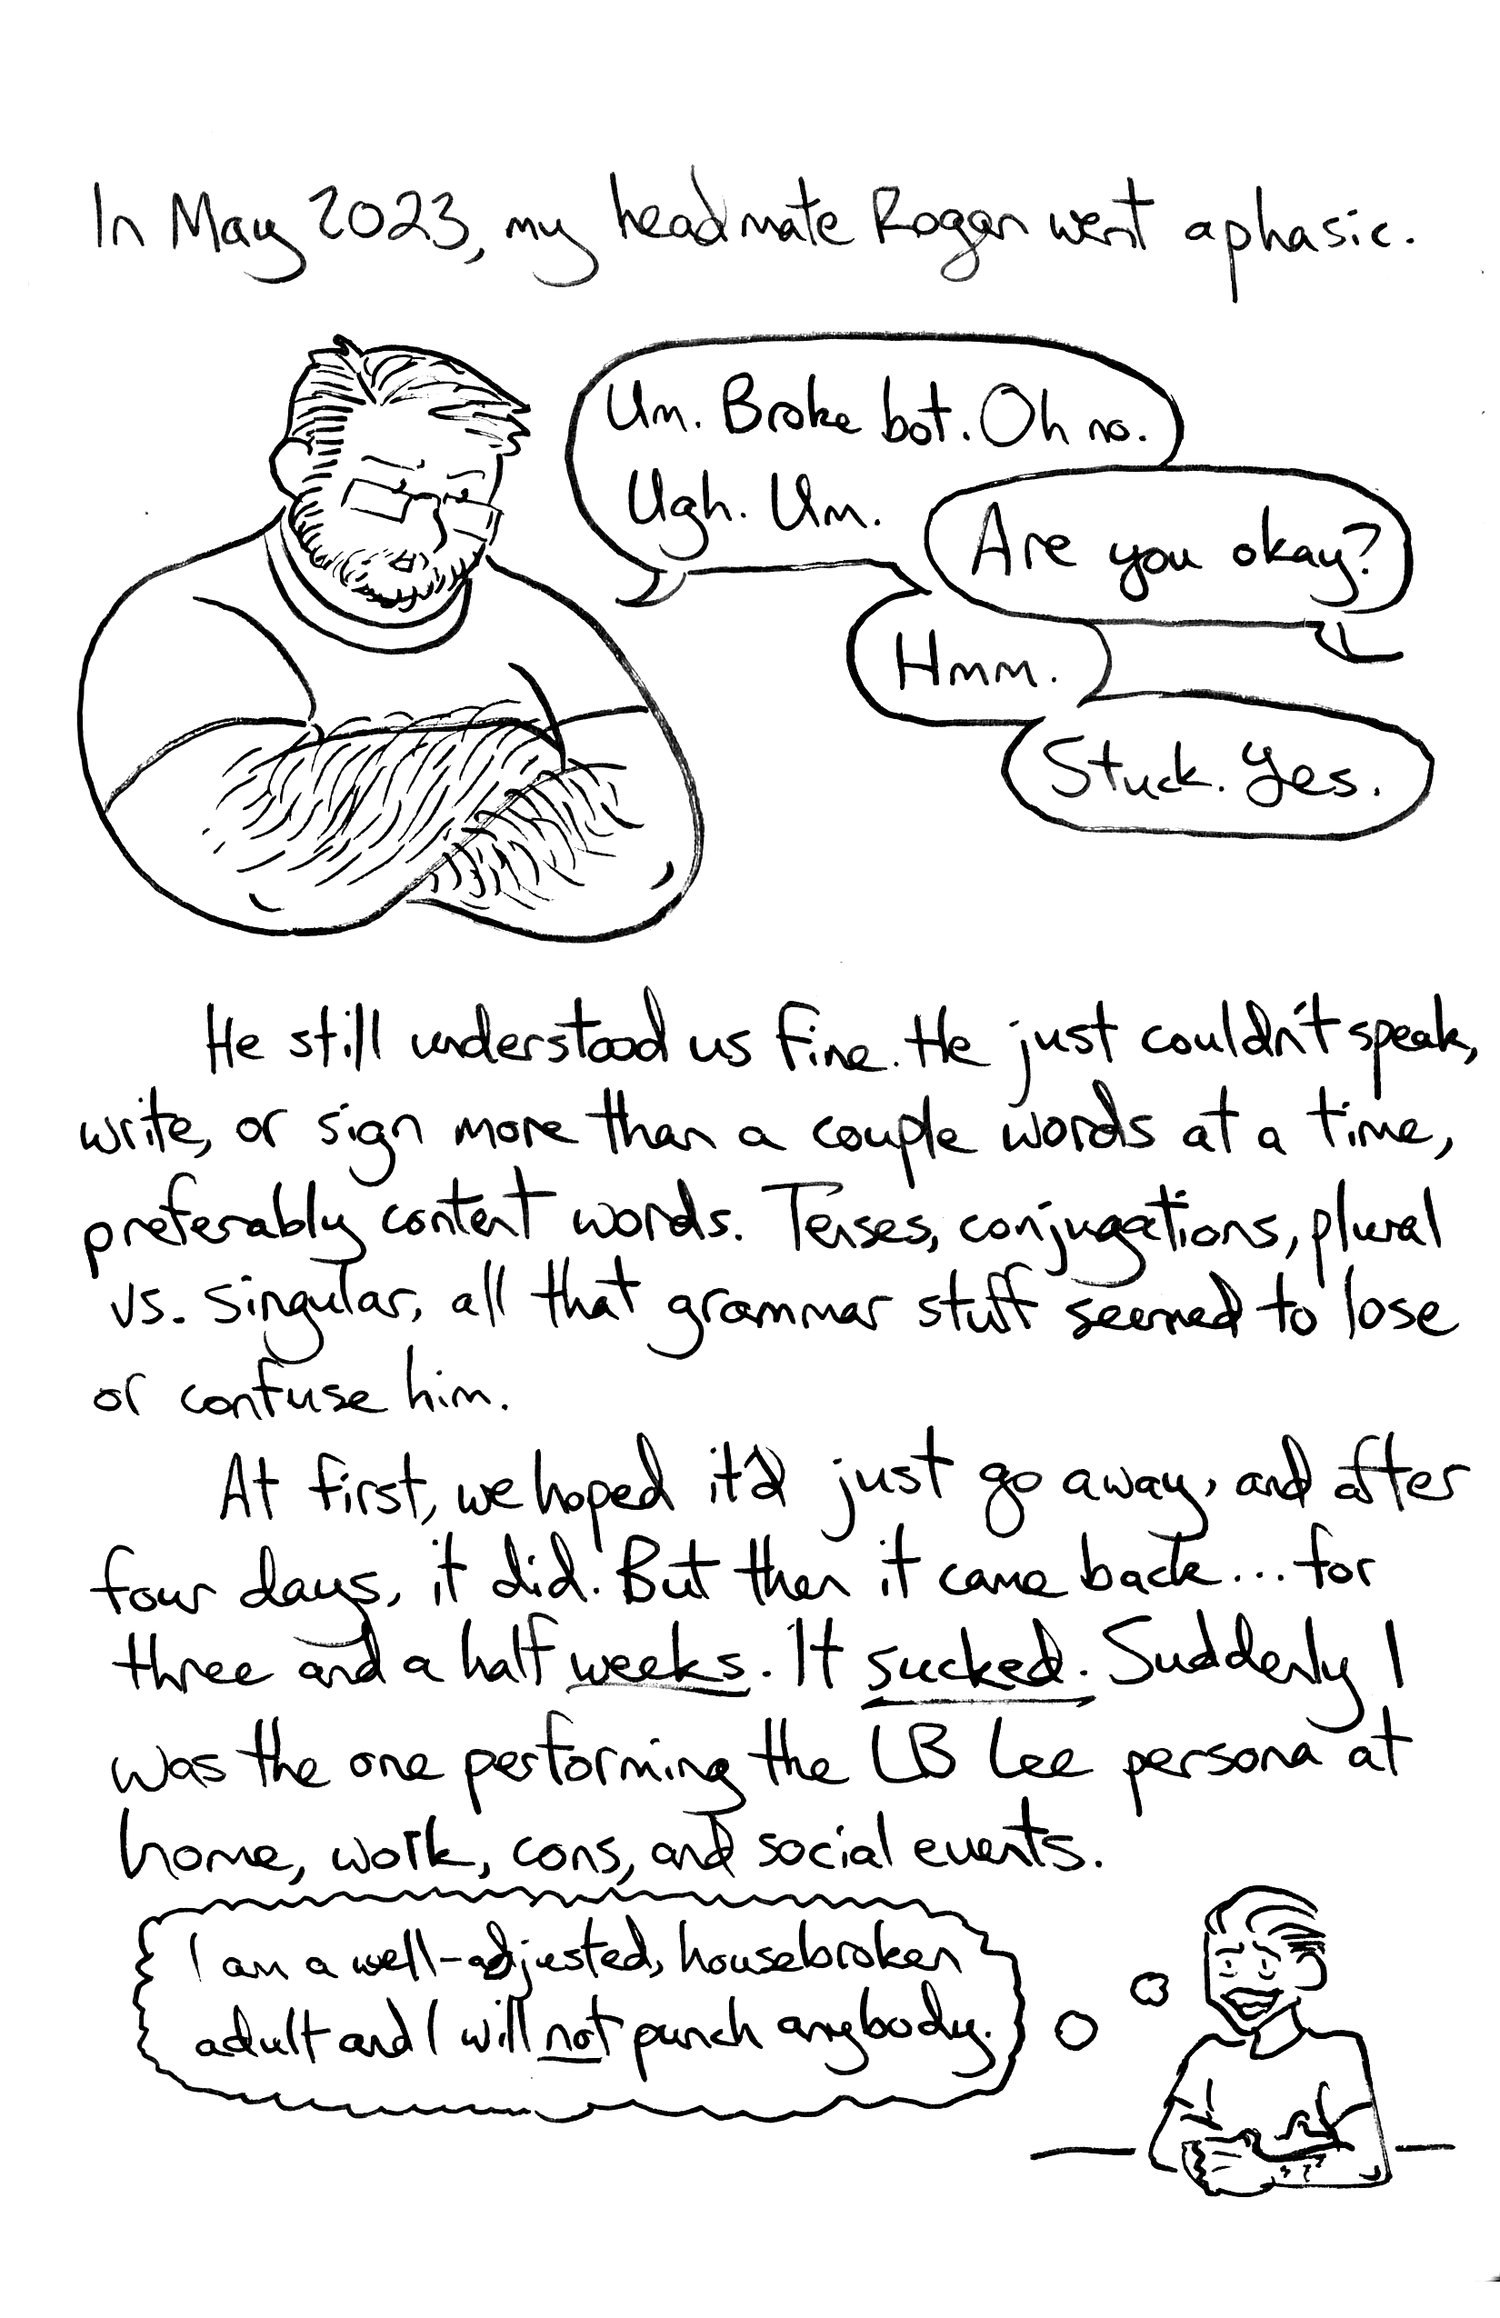 In May 2023, my headmate Rogan went aphasic.
Um. Broke bot. Oh no.
Ugh. Um.
Are you okay?
Hmm.
Stuck. Yes.
He still understood us fine. He just couldn't speak,
write, or sign more than a couple words at a time,
preferably content words. Tenses, conjugations, plural
vs. singular, all that grammar stuff seemed to lose
or confuse him.
At first, we hoped it'd just go away, and after
four days, it did. But then it came back... for
three and a half weeks. It sucked. Suddenly I
was the one performing the LB Lee persona at
home, work, cons, and social events.
I am a well-adjusted, housebroken
adult and I will not punch anybody.